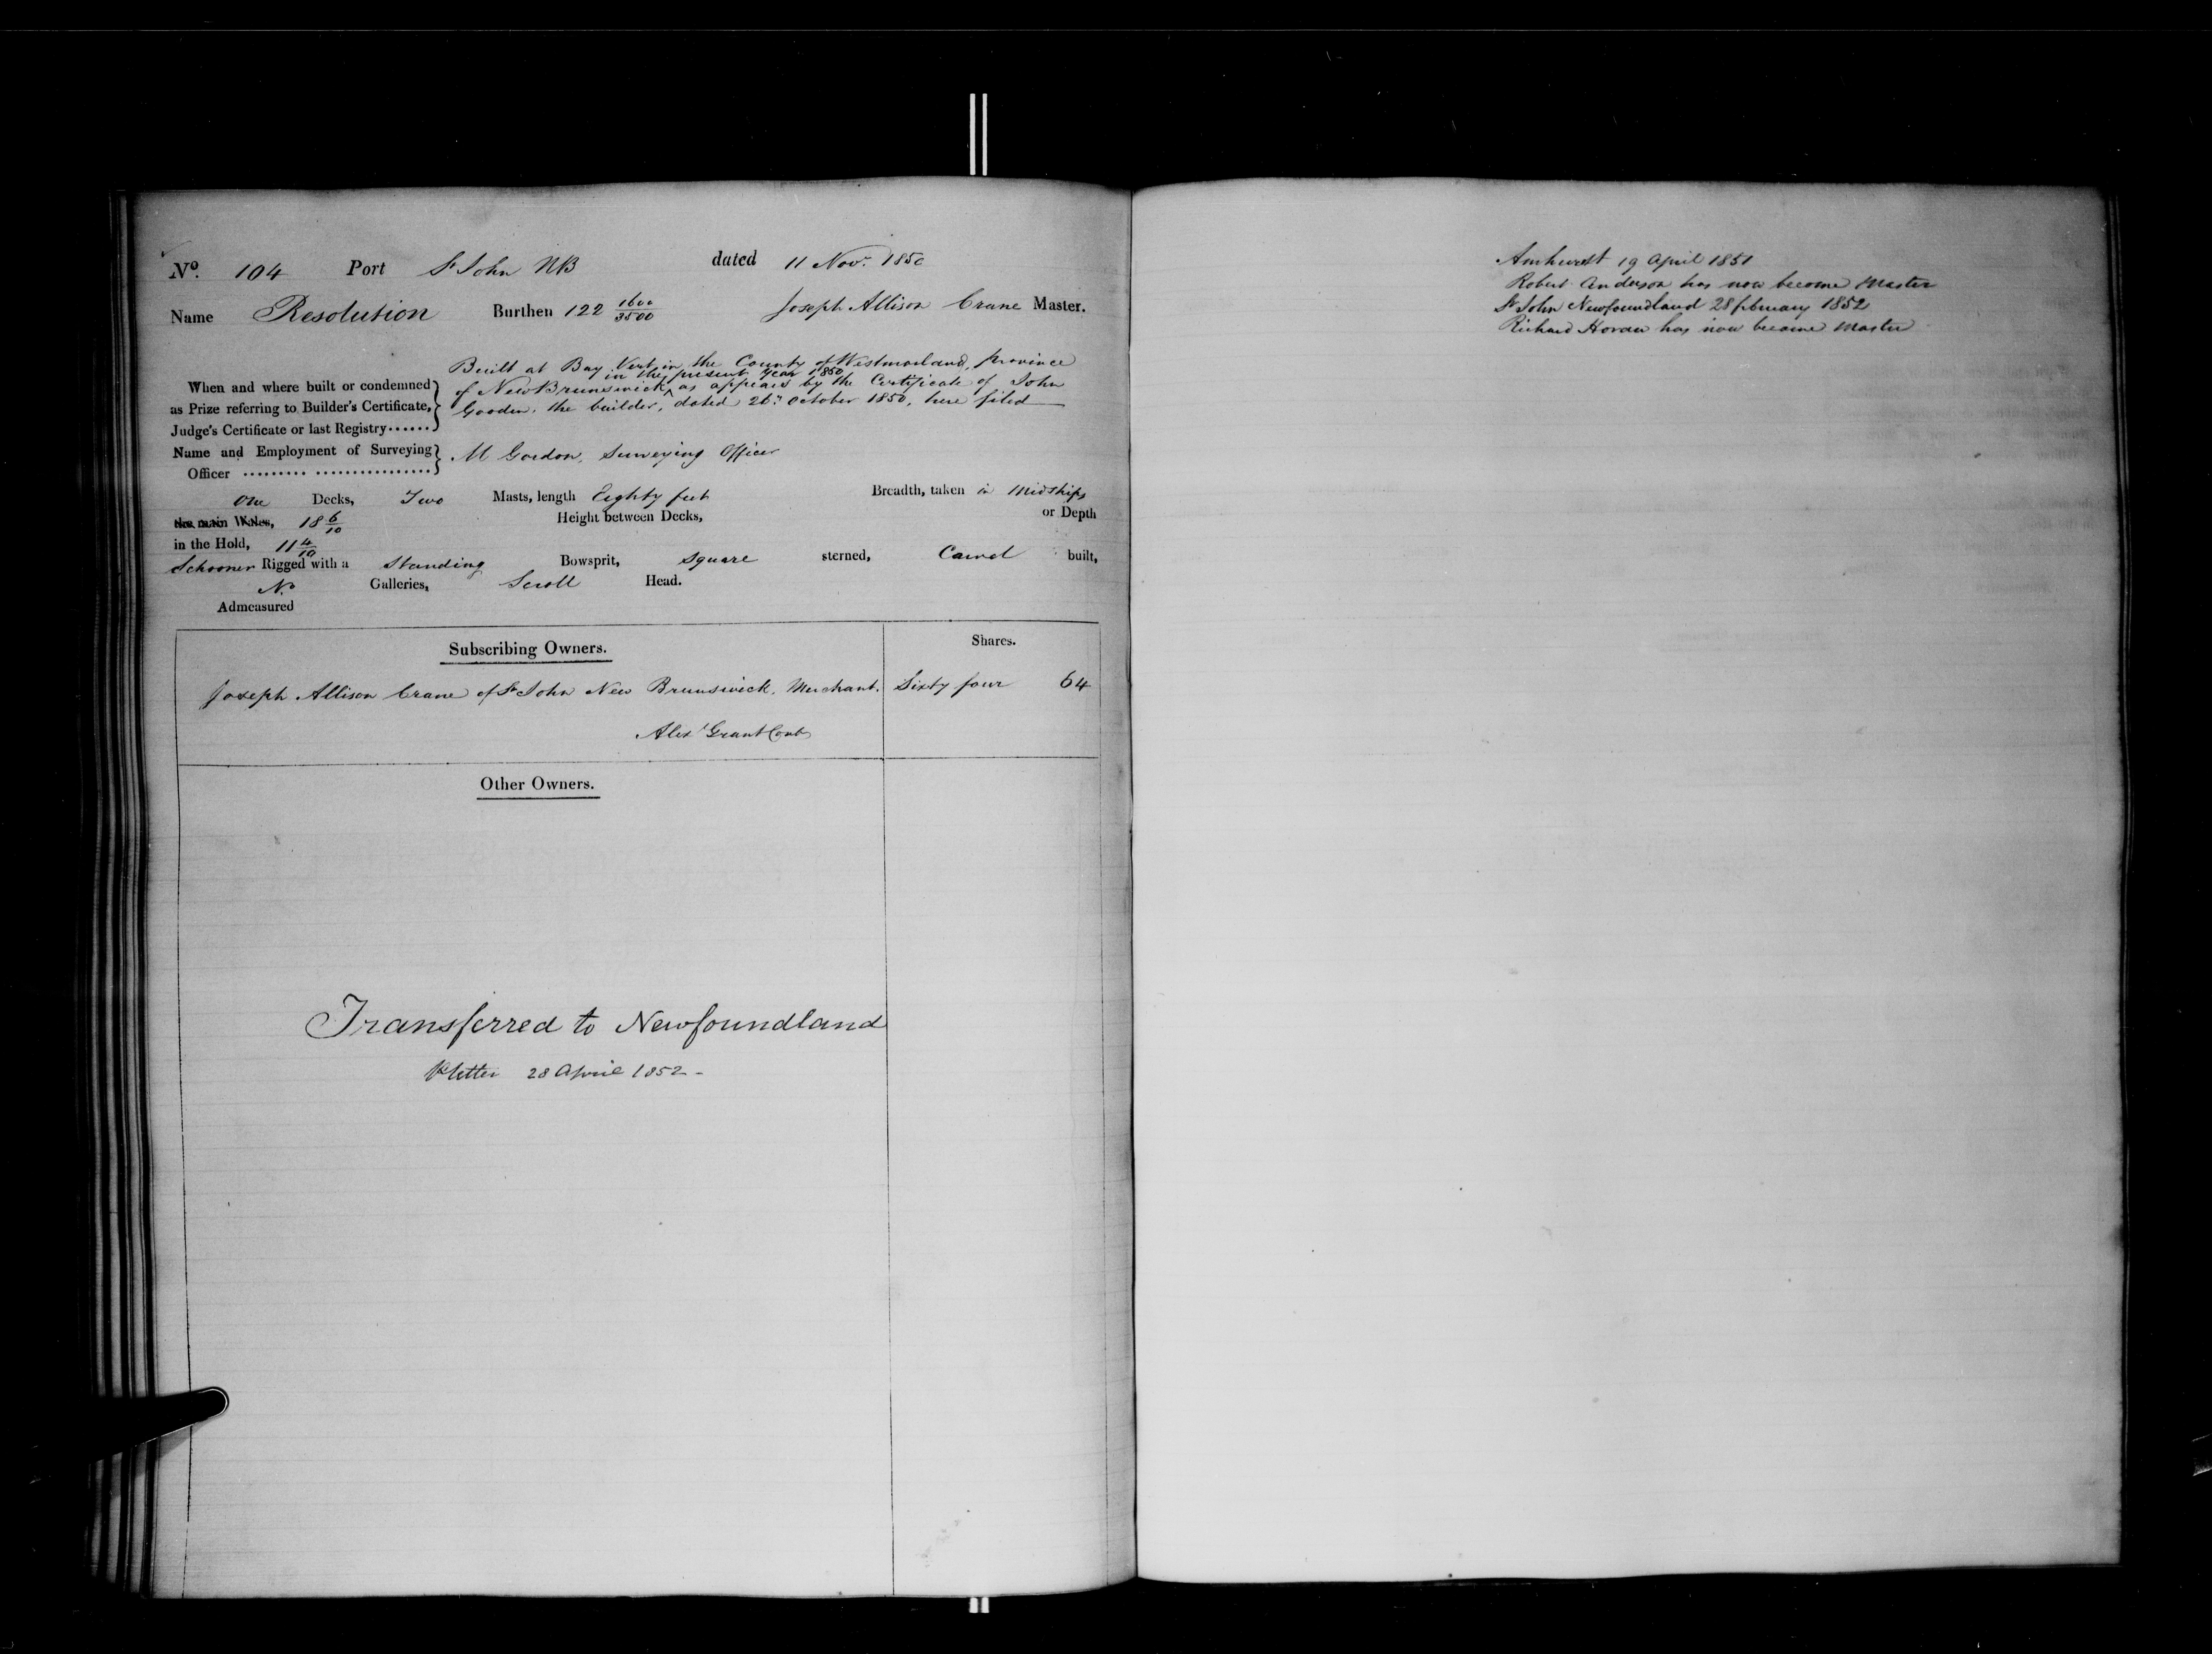 No. 104 Port St John NB dated 11 Novr. 1850
Name Resolution Burthen 122 1600/3500 Joseph Allison Crane Master.
Built at Bay Vert in the County of Westmorland, province
in the present year 1850
When and where built or condemned of New Brunswick ^ as appears by the Certificate of John
as Prize referring to Builder's Certificate, Gooden, the builder, dated 26th October 1850, here filed
Judge's Certificate or last Registry......
Name and Employment of Surveying M Gordon, Surveying Officer
Officer ......... ................
One Decks, Two Masts, length Eighty feet Breadth, taken in Midships
the main Wales, 18 6/10 Height between Decks, or Depth
in the Hold, 11 4/10
Schooner Rigged with a Standing Bowsprit, Square sterned, Carvel built,
No Galleries, Scroll Head.
Admeasured
Subscribing Owners. Shares.
Joseph Allison Crane of St John New Brunswick, Merchant. Sixty four 64
Alexr Grant Cont
Other Owners.
Transferred to Newfoundland
letter 28 April 1852 -
Amherst 19 April 1851
Robert Anderson has now become Master
St John Newfoundland 28 february 1852
Richard has now become Master